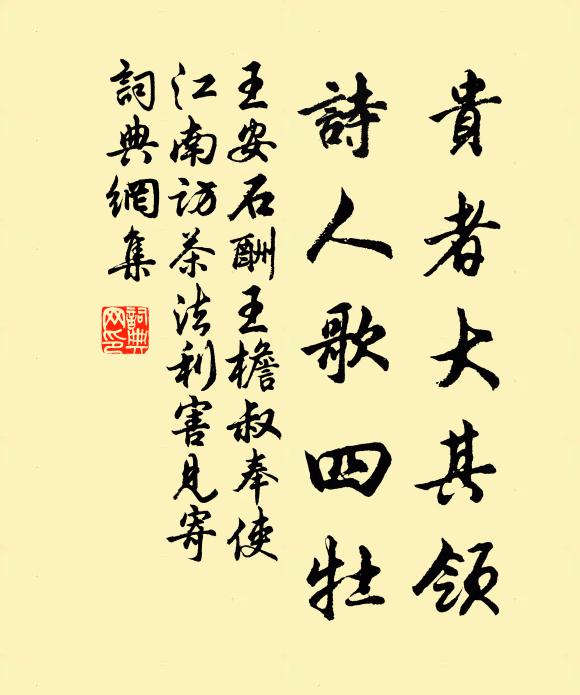 貴者大其領
詩人歌四牡
王安石酬王檐叔奉使
江南訪茶法利害見寄
詞典網集
詞典网印